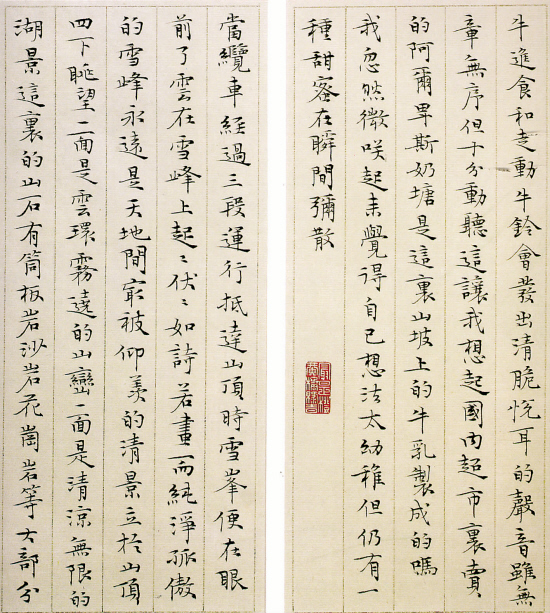 牛進食和走動牛鈴會發出清脆悅耳的聲音雖無
章無序但十分動聽這讓我想起國內超市裏賣
的阿爾卑斯奶塘是這裏山坡上的牛乳製成的嗎
我忽然微咲起来覺得自己想法太幼稚但仍有一
種甜蜜在瞬間彌散
當纜車經過三段運行抵達山頂時雪峯便在眼
前了雲在雪峰上起〻伏〻如詩若畫而純淨孤傲
的雪峰永遠是天地間最被仰羨的清景立於山頂
四下眺望二面是雲環霧遶的山巒一面是清涼無限的
湖景這裏的山石有筒板岩沙岩花崗岩等大部分